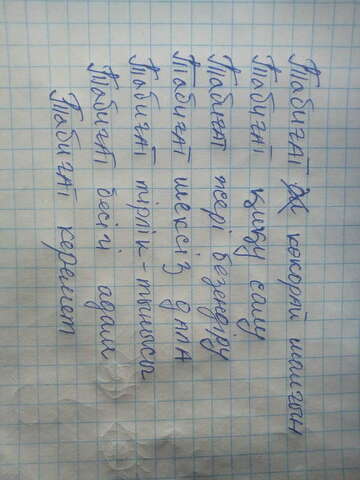 Табиғат көкорай шалғын
Табиғат салу
Табиғат жері безендіру
Табиғат шексіз дала
Табиғат тірлік-тынысы
Табиғат бесігі адам
Табиғат керемет